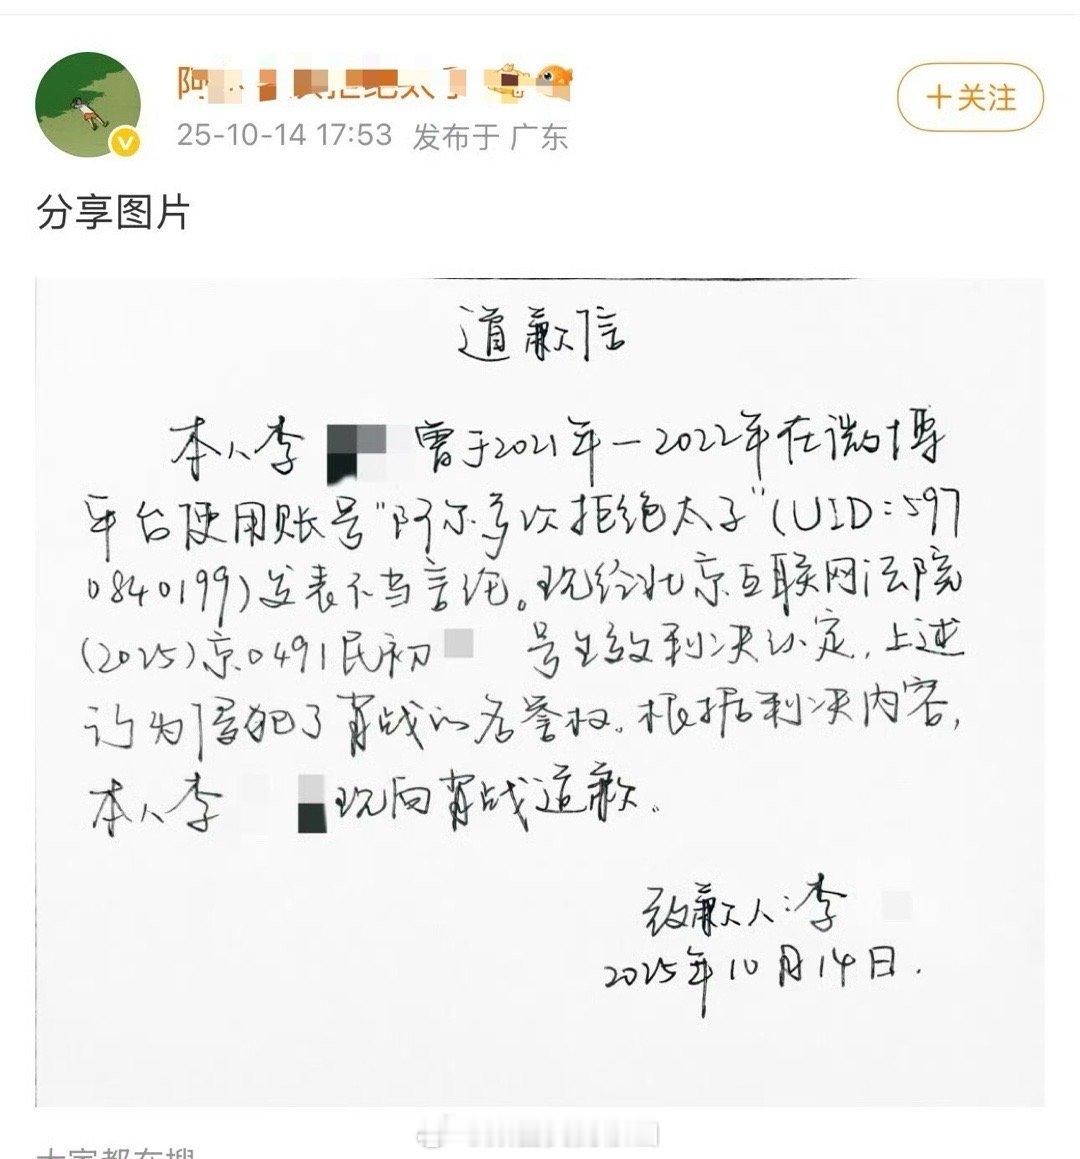 25-10-14 17:53 发布于 广东
+关注
分享图片
道歉信
本人李 曾于2021年-2022年在微博
平台使用账号"阿尔多次拒绝太子"(UID:597
0840199)发表不当言论。现经北京互联网法院
(2025)京0491民初 号生效判决认定,上述
行为侵犯了肖战的名誉权。根据判决内容,
本人李 现向肖战道歉。
致歉人:李
2025年10月14日.
大家都在搜